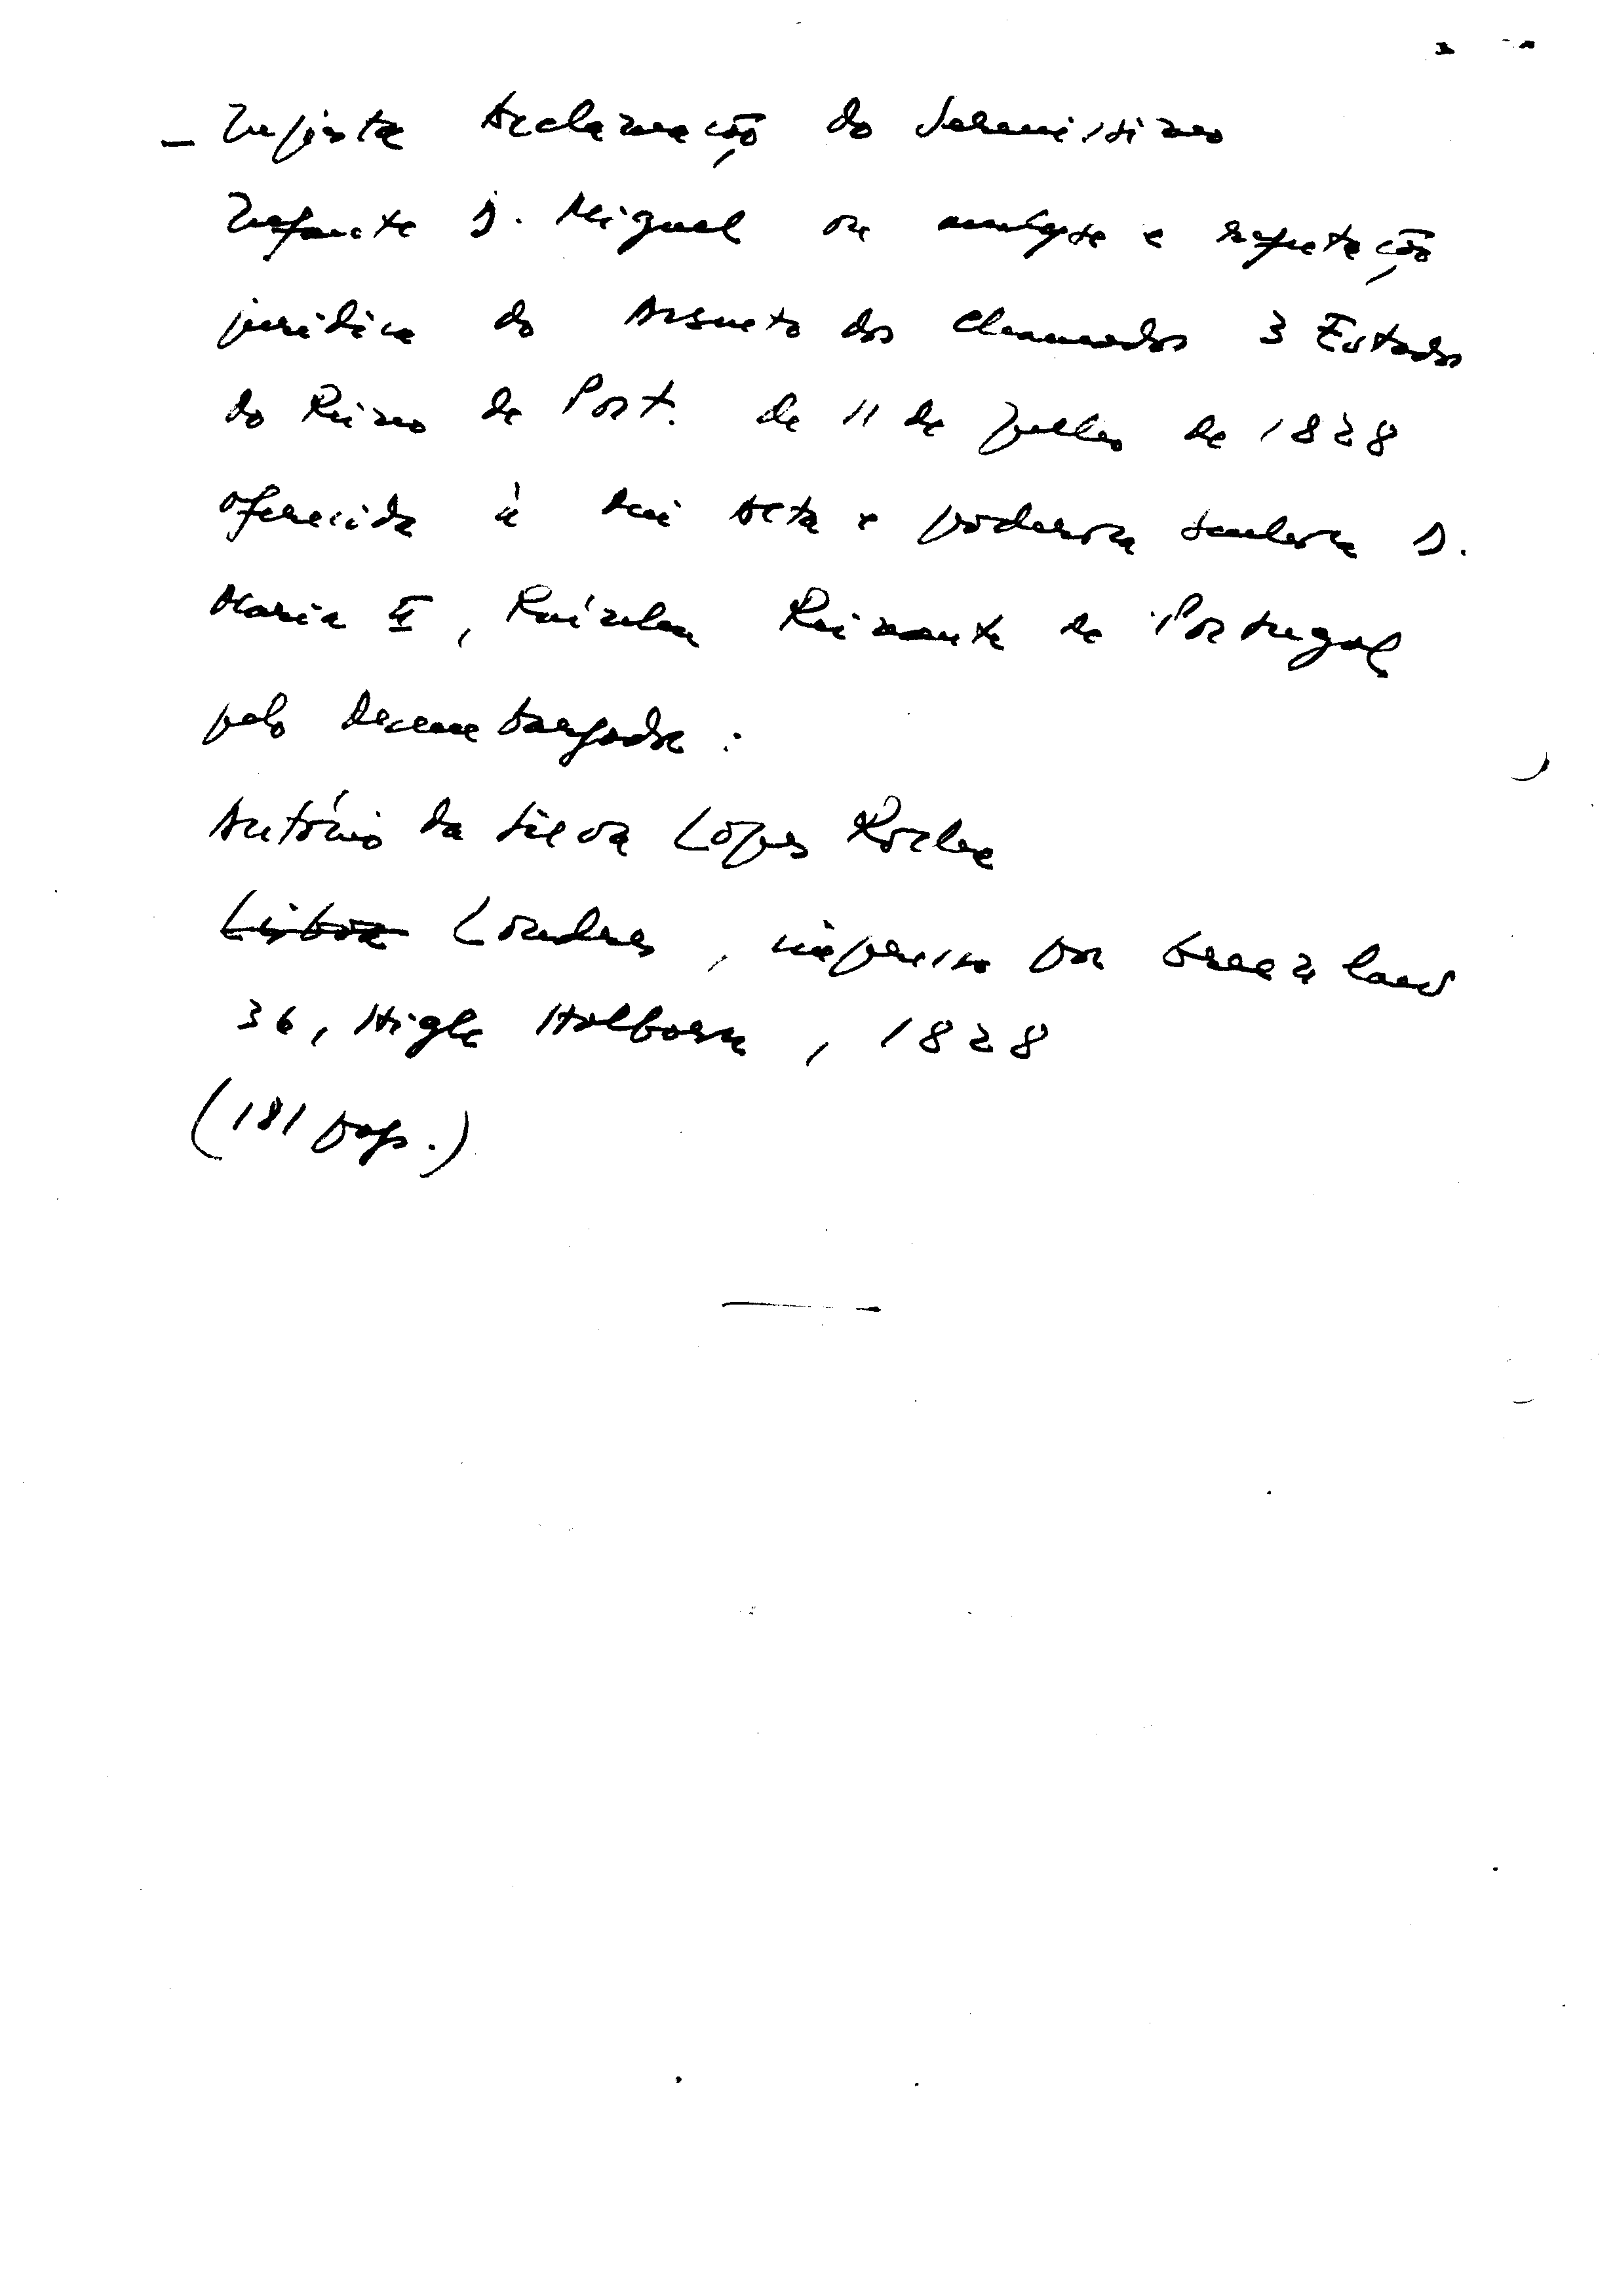 – Injusta Acclamação do Serenissimo
Infante D. Miguel ou analyse e refutação
juridica do Assueto dos chamados 3 Estados
do Reino de Port. de 11 de Julho de 1828
oferecida à Mui Alta e poderosa Senhora D.
Maria II, Raínha Reinante de Portugal
pelo Desembargador :
António da Silva Lopes Rocha
Lisboa Londres, impresso por Greenlaw
36, High Holborn, 1828
(181 pags.)